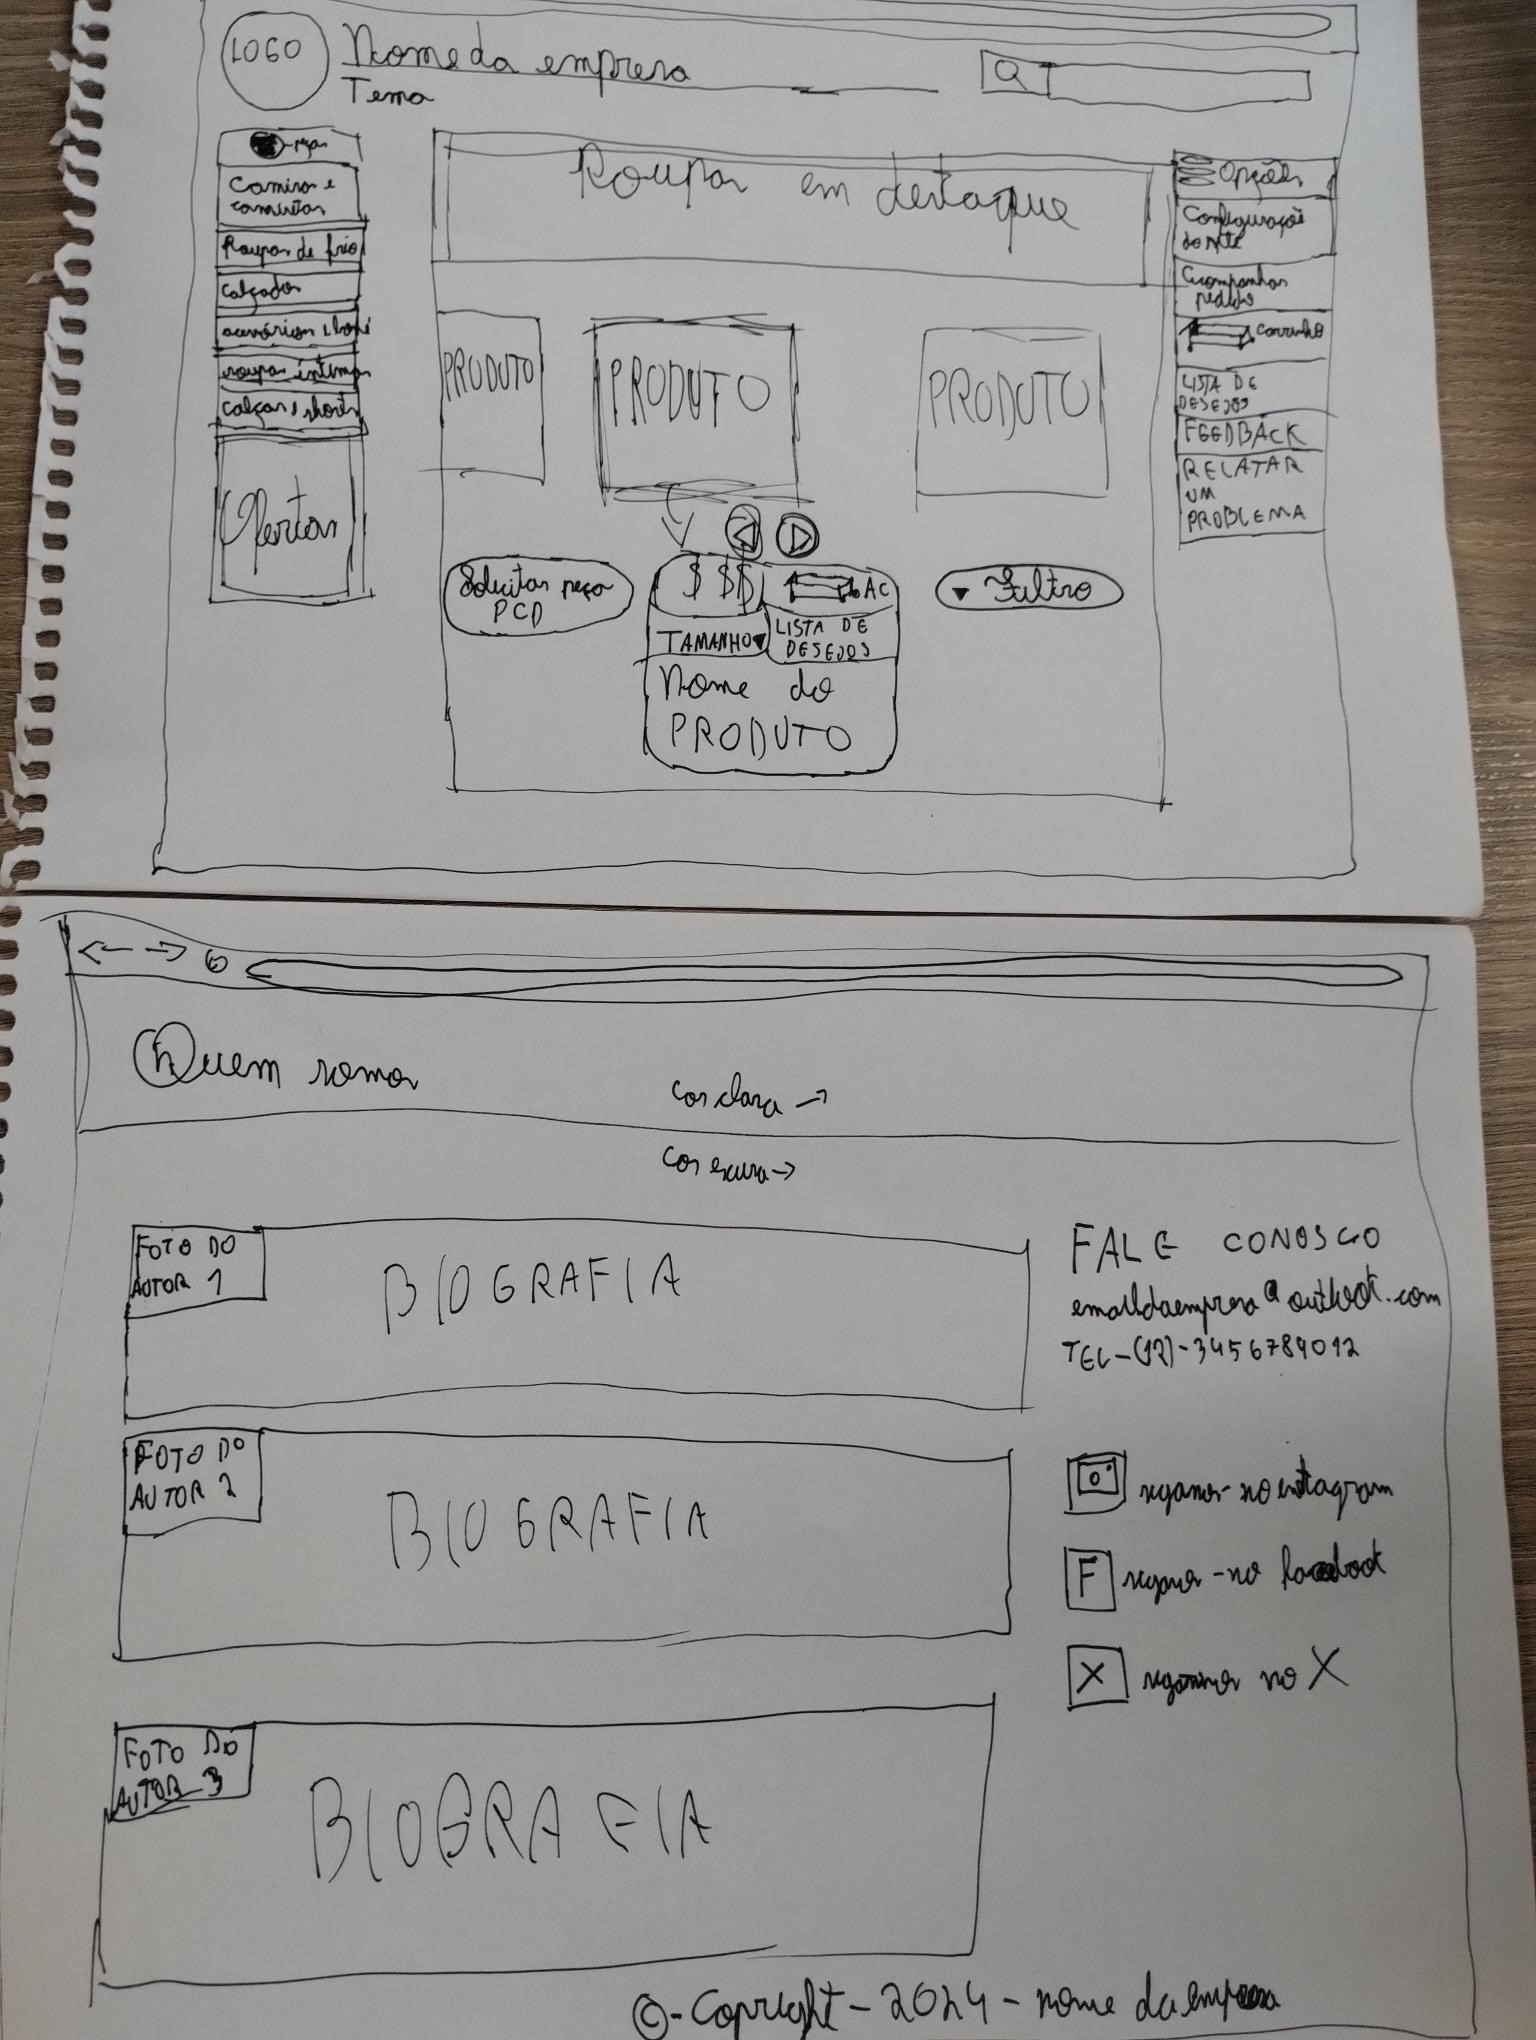 LOGO
Nome da empresa
Tema
peças
Camisas e
camisetas
Roupas de frio
calçados
acessórios e boné
roupas íntimas
calças e shorts
Ofertas
Roupas em destaque
PRODUTO
PRODUTO
PRODUTO
Solicitar peça
PCD
$ $$
AC
TAMANHO
LISTA DE
DESEJOS
Nome do
PRODUTO
Filtro
Opções
Configuração
do site
Acompanhar
pedido
carrinho
LISTA DE
DESEJOS
FEEDBACK
RELATAR
UM
PROBLEMA
Quem somos
Cor clara →
Cor escura →
FOTO DO
AUTOR 1
BIOGRAFIA
FOTO DO
AUTOR 2
BIOGRAFIA
FOTO DO
AUTOR 3
BIOGRAFIA
FALE CONOSCO
emaildaempresa@outlook.com
TEL-(12)-3456789012
siganos-no instagram
F siganos-no facebook
X siganos no X
©-Copyright-2024-nome da empresa